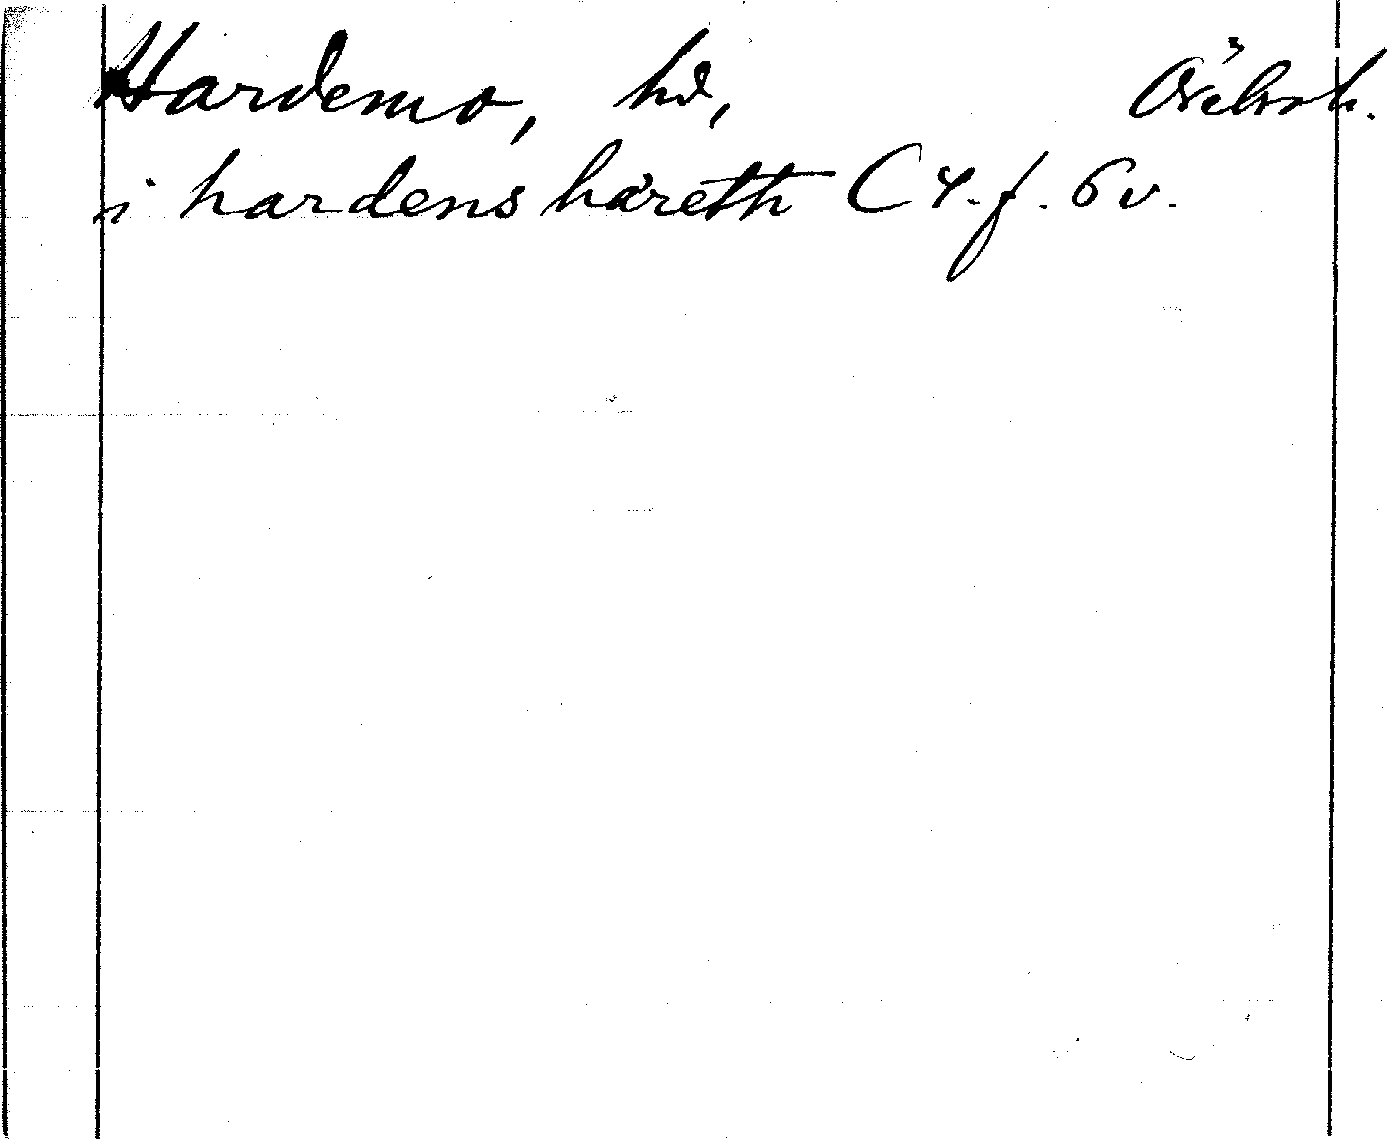 Hardemo, hd, Örebroh.
i hardens häreth C 4. f. 6 v.